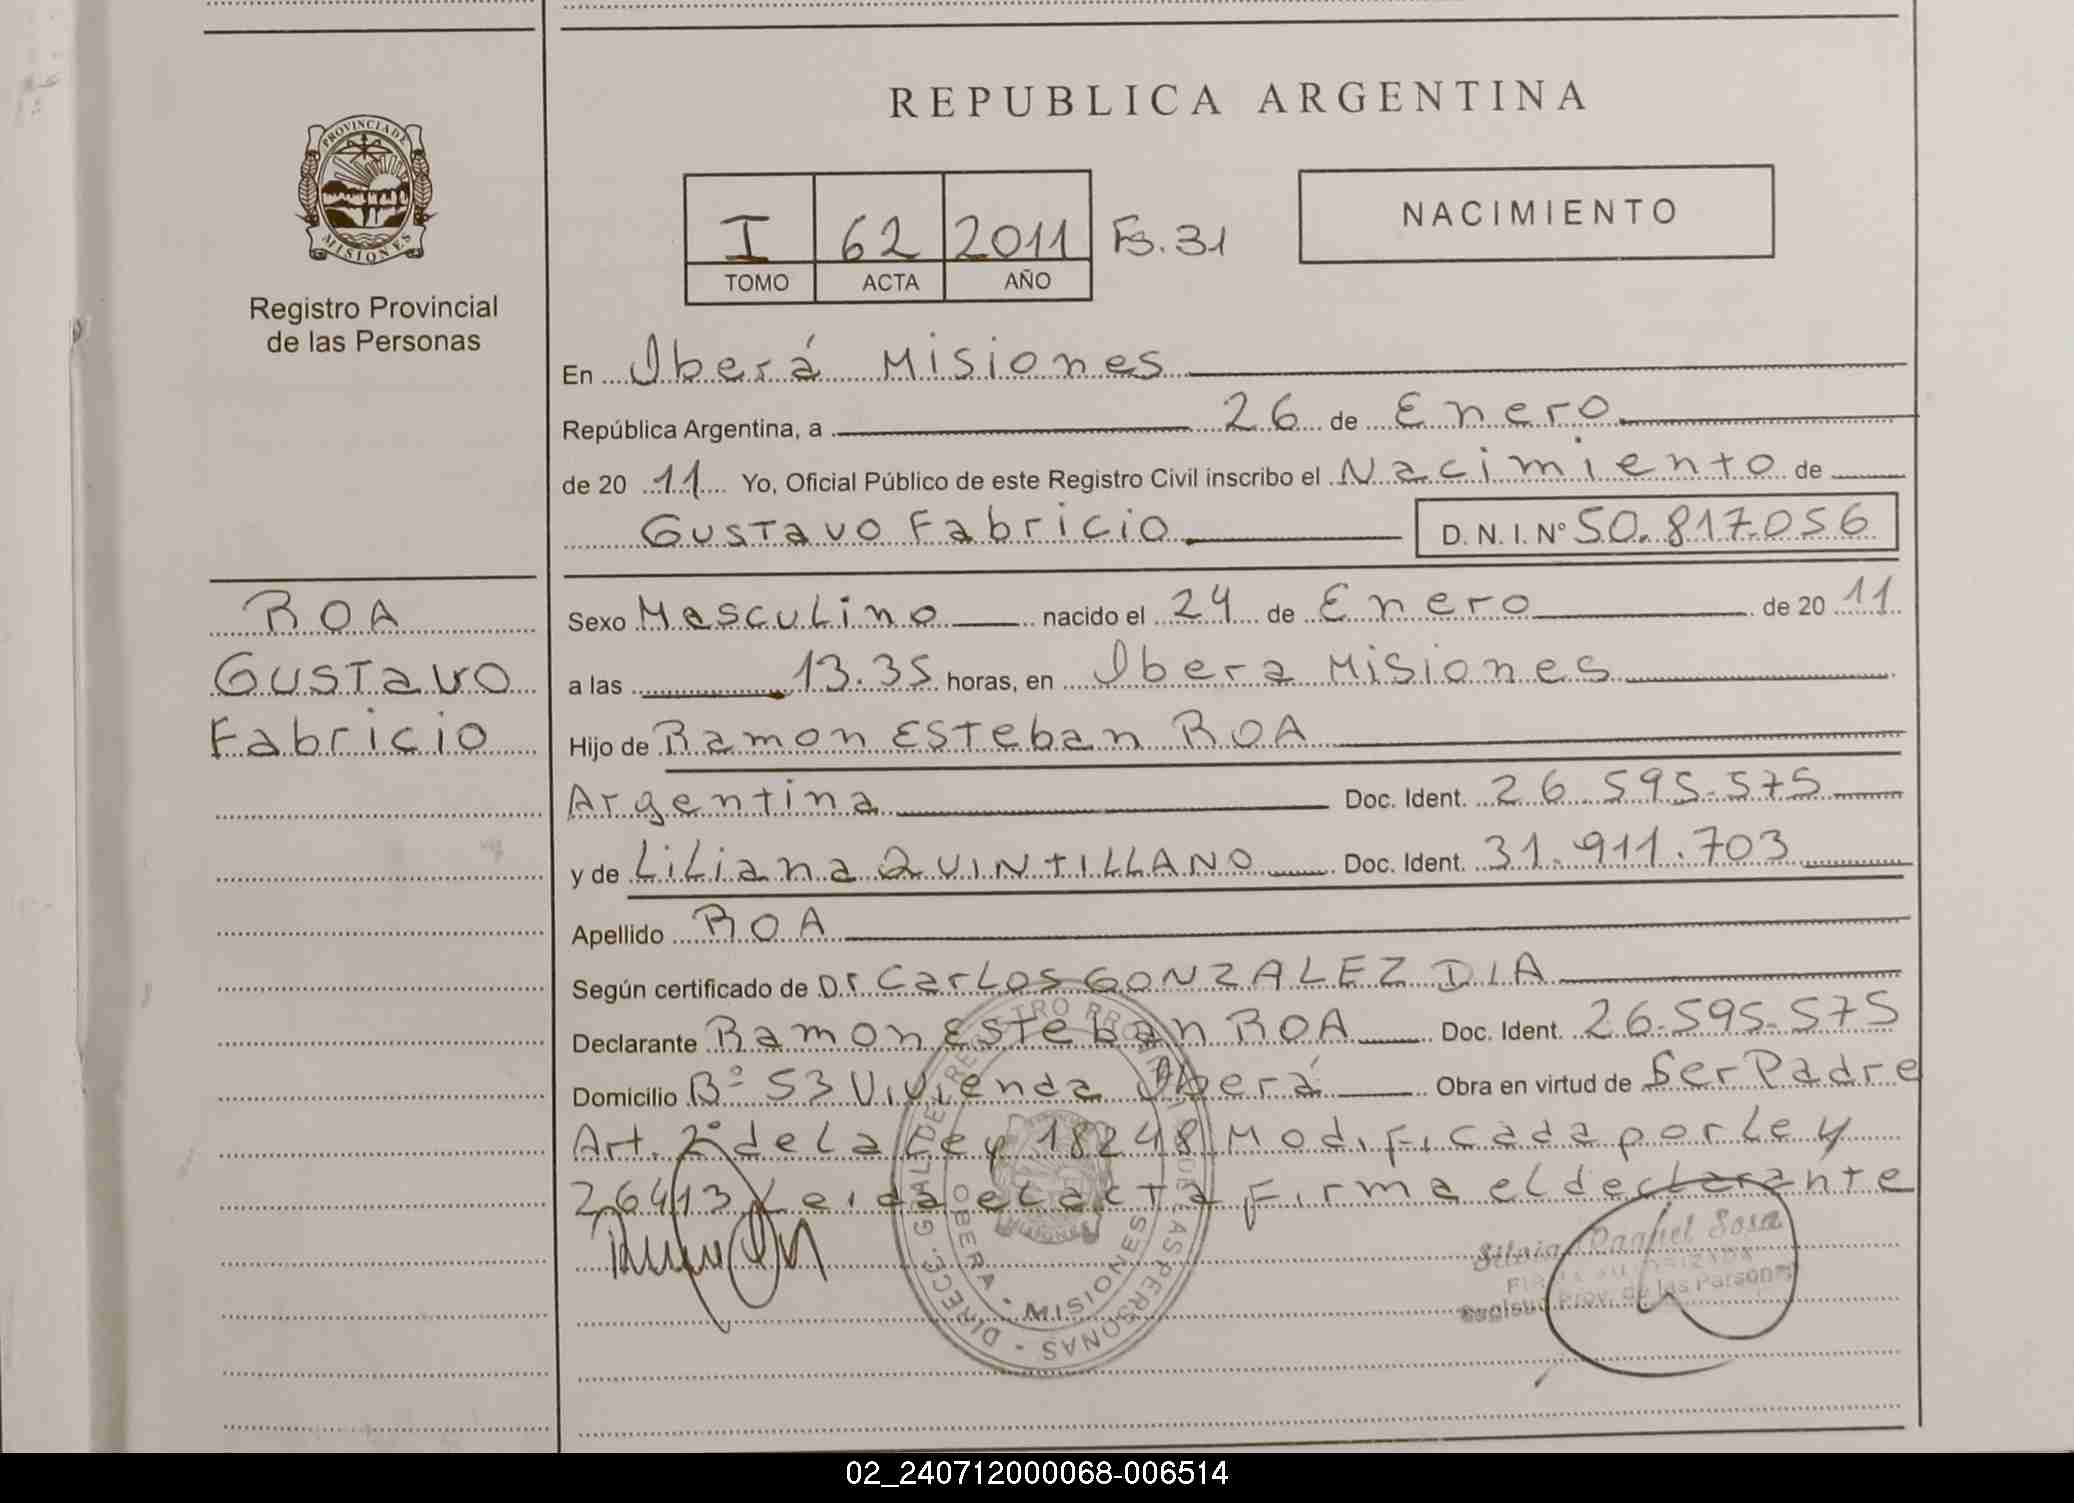 REPUBLICA ARGENTINA
PROVINCIA DE
MISIONES
Registro Provincial
de las Personas
I 62 2011 Fs. 31
TOMO ACTA AÑO
NACIMIENTO
En Iberá Misiones
República Argentina, a 26 de Enero
de 20 11 Yo, Oficial Público de este Registro Civil inscribo el Nacimiento de
Gustavo Fabricio D. N. I. Nº 50.817.056
ROA
Gustavo
Fabricio
Sexo Masculino nacido el 24 de Enero de 20 11
a las 13.35 horas, en Ibera Misiones
Hijo de Ramon Esteban ROA
Argentina Doc. Ident. 26.595.575
y de Liliana QUINTILLANO Doc. Ident. 31.911.703
Apellido ROA
Según certificado de Dr Carlos GONZALEZ DIA
Declarante Ramon Esteban ROA Doc. Ident. 26.595.575
Domicilio Bº 53 Vivienda Iberá Obra en virtud de Ser Padre
Art. 2º de la Ley 18248 Modificada por Ley
26413 Leida el acta firma el declarante
DIRECC. GRAL DE REGISTRO PROVINCIAL DE LAS PERSONAS
OBERA - MISIONES
Silvia Raquel Sosa
FIRMA AUTORIZADA
Registro Prov. de las Personas
02_240712000068-006514